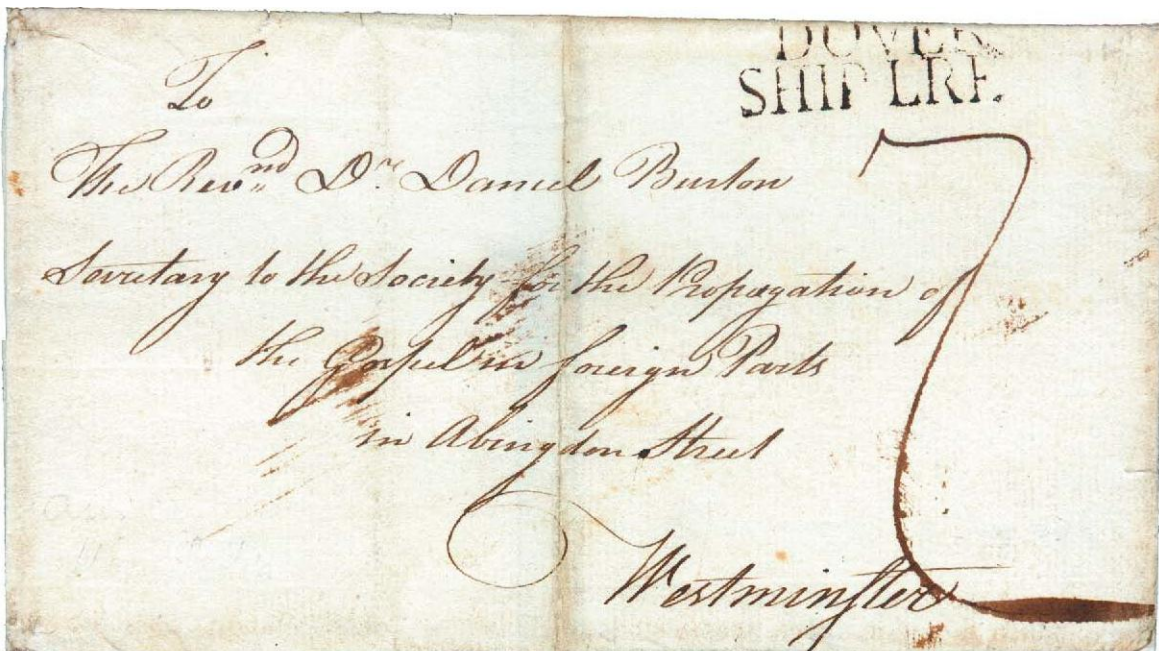 DOVER
SHIP LRE.
To
The Revnd Dr. Daniel Burton
Secretary to the Society for the Propagation of
the Gospel in foreign Parts
in Abingdon Street
Westminster
7